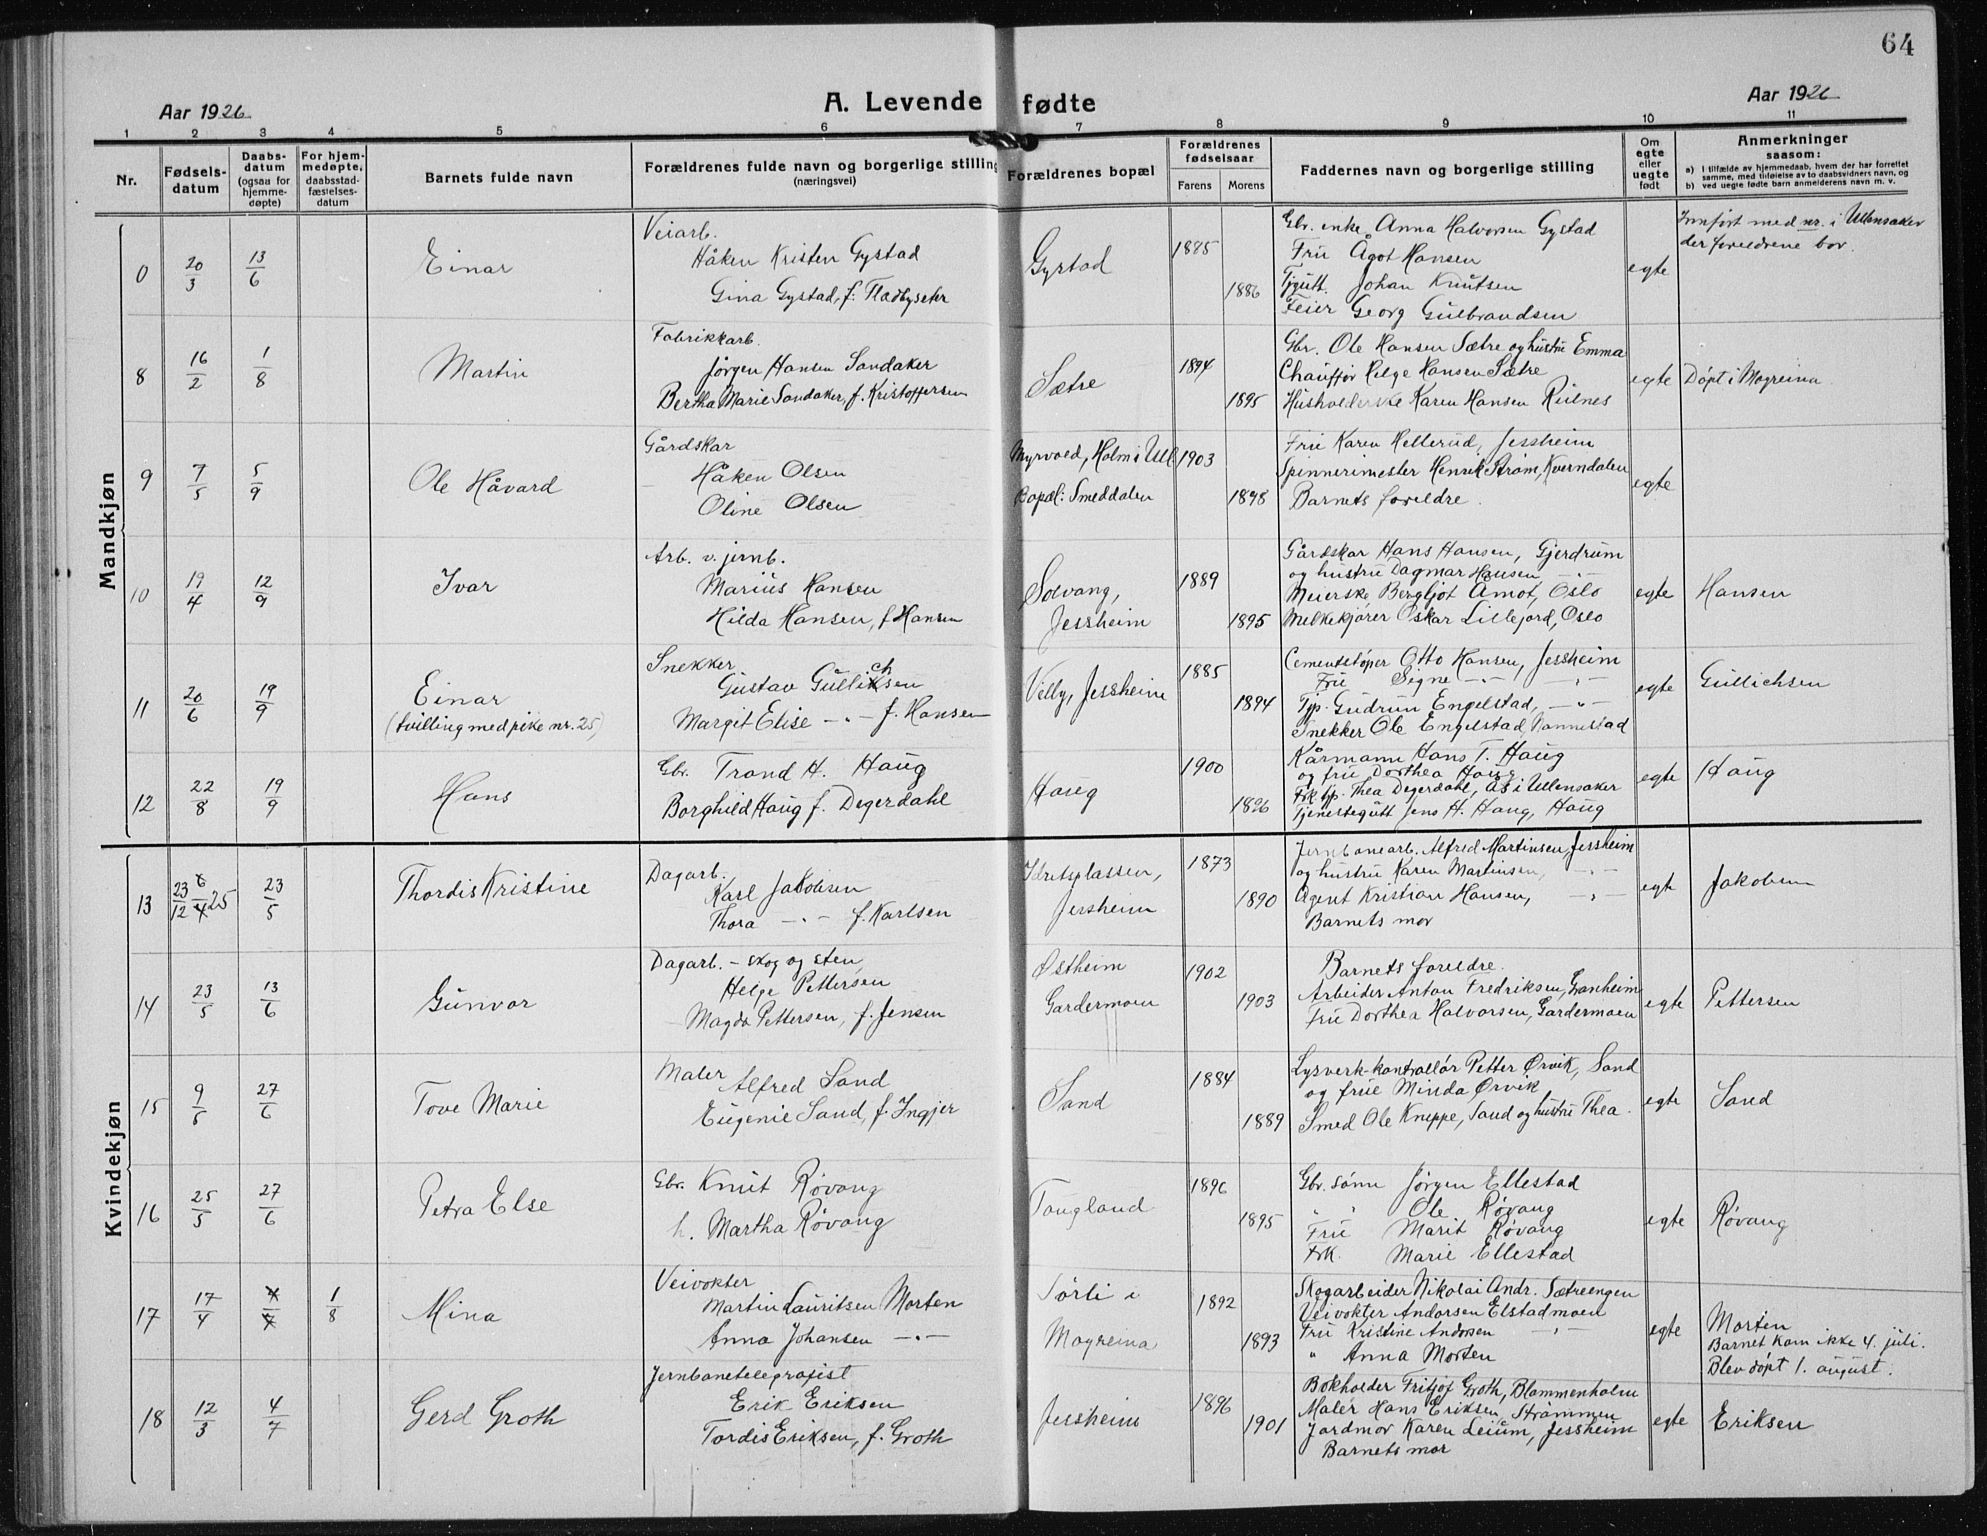 64
Aar 1926
A. Levende fødte
Aar 1926
1 2 3 4 5 6 7 8 9 10 11
Nr.
Fødsels-datum
Daabs-datum (ogsaa for hjemme-døpte)
For hjem-medøpte, daabsstad-fæstelses-datum
Barnets fulde navn
Forældrenes fulde navn og borgerlige stilling
(næringsvei)
Forældrenes bopæl
Forældrenes fødselsaar
Farens Morens
Faddernes navn og borgerlige stilling
Om egte eller uegte født
Anmerkninger
saasom:
a) I tilfælde av hjemmedaab, hvem der har forrettet samme, med tilføielse av to daabsvidners navn, og
b) ved uegte fødte barn anmelderens navn m. v.
Mandkjøn
0 20/3 13/6 Einar
Veiarb.
Håken Kristen Gystad
Gina Gystad, f. Fladbyseter
Gystad
1885
1886
Gbr. enke Anna Halvorsen Gystad
Fru Ågot Hansen
Tjgutt. Johan Knutsen
Feier Georg Gulbrandsen
egte
Innført med nr. i Ullensaker
der foreldrene bor.
8 16/2 1/8 Martin
Fabrikkarb.
Jørgen Hansen Sandaker
Bertha Marie Sandaker, f. Kristoffersen
Sætre
1894
1895
Gbr. Ole Hansen Sætre og hustru Emma
Chauffør Helge Hansen Sætre
Husholderske Karen Hansen Rulnes
egte
Døpt i Mogreina
9 7/5 5/9 Ole Håvard
Gårdskar
Håken Olsen
Oline Olsen
Myrvold, Holm i Ull.
Bopæl: Smeddalen
1903
1898
Fru Karen Hellerud, Jessheim
Spinnerimester Henrik Strøm, Kverndalen
Barnets foreldre.
egte
10 19/4 12/9 Ivar
Arb. v. jernb.
Marius Hansen
Hilda Hansen, f. Hansen
Solvang,
Jessheim
1889
1895
Gårdskar Hans Hansen, Gjerdrum
og hustru Dagmar Hansen —"—
Meierske Bergljot Åmot, Oslo
Melkekjører Oskar Lillejord, Oslo
egte
Hansen
11 20/6 19/9 Einar
(tvilling med pike nr. 25)
Snekker
Gustav Gulliksen
ch
Margit Elise —"— f. Hansen
Velly, Jessheim
1885
1894
Cementstøper Otto Hansen, Jessheim
Fru Signe —"— —"—
Tjp. Gudrun Engelstad, —"—
Snekker Ole Engelstad, Nannestad
egte
Gullichsen
12 22/8 19/9 Hans
Gbr. Trond H. Haug
Borghild Haug f. Degerdahl
Haug
1900
1896
Kårmann Hans T. Haug
og fru Dorthea Haug
Frk tjp. Thea Degerdahl, Ås i Ullensaker
Tjenestegutt Jens H. Haug, Haug
egte
Haug
Kvindekjøn
13 23/12 6/4 25 23/5 Thordis Kristine
Dagarb.
Karl Jakobsen
Thora —"— f. Karlsen
Idretsplassen,
Jessheim
1873
1890
Jernbanearb. Alfred Martinsen, Jessheim
og hustru Karen Martinsen, —"—
Agent Kristian Hansen, —"—
Barnets mor
egte
Jakobsen
14 23/5 13/6 Gunvor
Dagarb. - skog og sten
Helge Pettersen
Magda Pettersen, f. Jensen
Østheim
Gardermoen
1902
1903
Barnets foreldre.
Arbeider Anton Fredriksen, Granheim
Fru Dorthea Halvorsen, Gardermoen
egte
Pettersen
15 9/5 27/6 Tove Marie
Maler
Alfred Sand
Eugenie Sand, f. Ingjer
Sand
1884
1889
Lysverk-kontrollør Petter Ørvik, Sand
og frue Minda Ørvik
Smed Ole Kneppe, Sand og hustru Thea.
egte
Sand
16 25/5 27/6 Petra Else
Gbr. Knut Røvang
h. Martha Røvang
Tangland
1896
1895
Gbr. sønn Jørgen Ellestad
" " Ole Røvang
Fru Marit Røvang
Frk. Marie Ellestad
egte
Røvang
17 17/4 4/7 1/8 Mina
Veivokter
Martin Lauritsen Morten
Anna Johansen —"—
Sørli i
Mogreina
1892
1893
Skogarbeider Nikolai Andr. Sætreengen
Veivokter Andorsen Elstadmoen
Fru Kristine Andorsen —"—
" Anna Morten
egte
Morten
Barnet kom ikke 4. juli.
Blev døpt 1. august.
18 12/3 4/7 Gerd Groth
Jernbanetelegrafist
Erik Eriksen
Tordis Eriksen, f. Groth
Jessheim
1896
1901
Bokholder Fritjof Groth, Blommenholm
Maler Hans Eriksen, Strømmen
Jordmor Karen Leium, Jessheim
Barnets mor
egte
Eriksen